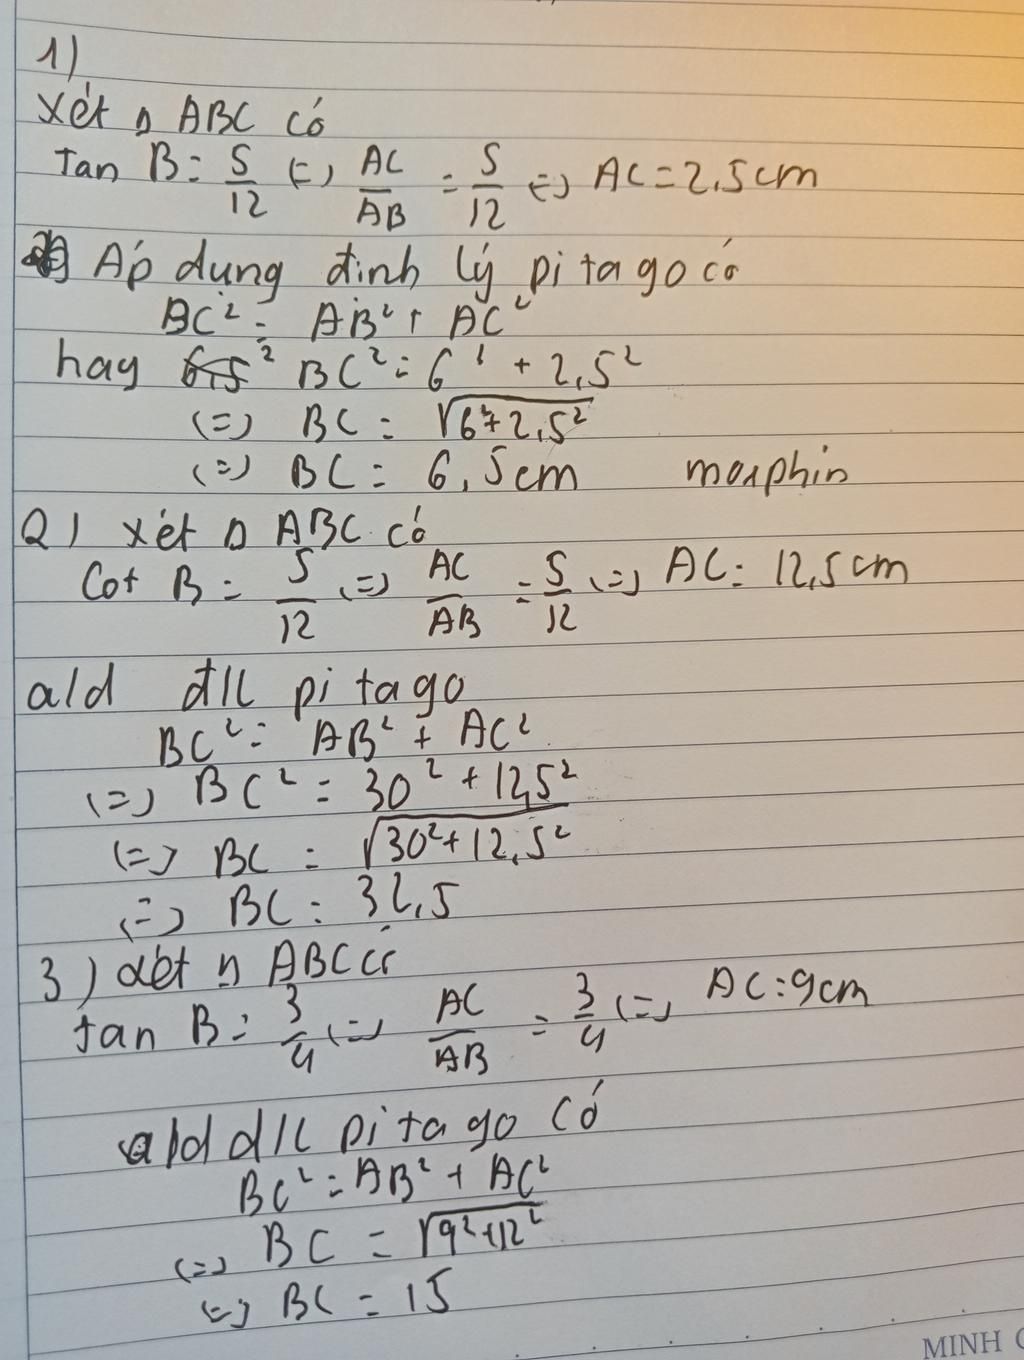 1)
xét Δ ABC có
Tan B = 5/12 (=) AC/AB = 5/12 (=) AC = 2,5cm
Áp dụng định lý pitago có
BC² = AB² + AC²
hay BC² = 6² + 2,5²
(=) BC = √(6²+2,5²)
(=) BC = 6,5cm morphin
2) xét Δ ABC có
Cot B = 5/12 (=) AC/AB = 5/12 (=) AC = 12,5cm
a/d đ/l pitago
BC² = AB² + AC²
(=) BC² = 30² + 12,5²
(=) BC = √(30²+12,5²)
(=) BC = 32,5
3) xét Δ ABC có
tan B = 3/4 (=) AC/AB = 3/4 (=) AC = 9cm
a/d đ/l pitago có
BC² = AB² + AC²
(=) BC = √(9²+12²)
(=) BC = 15
MINH